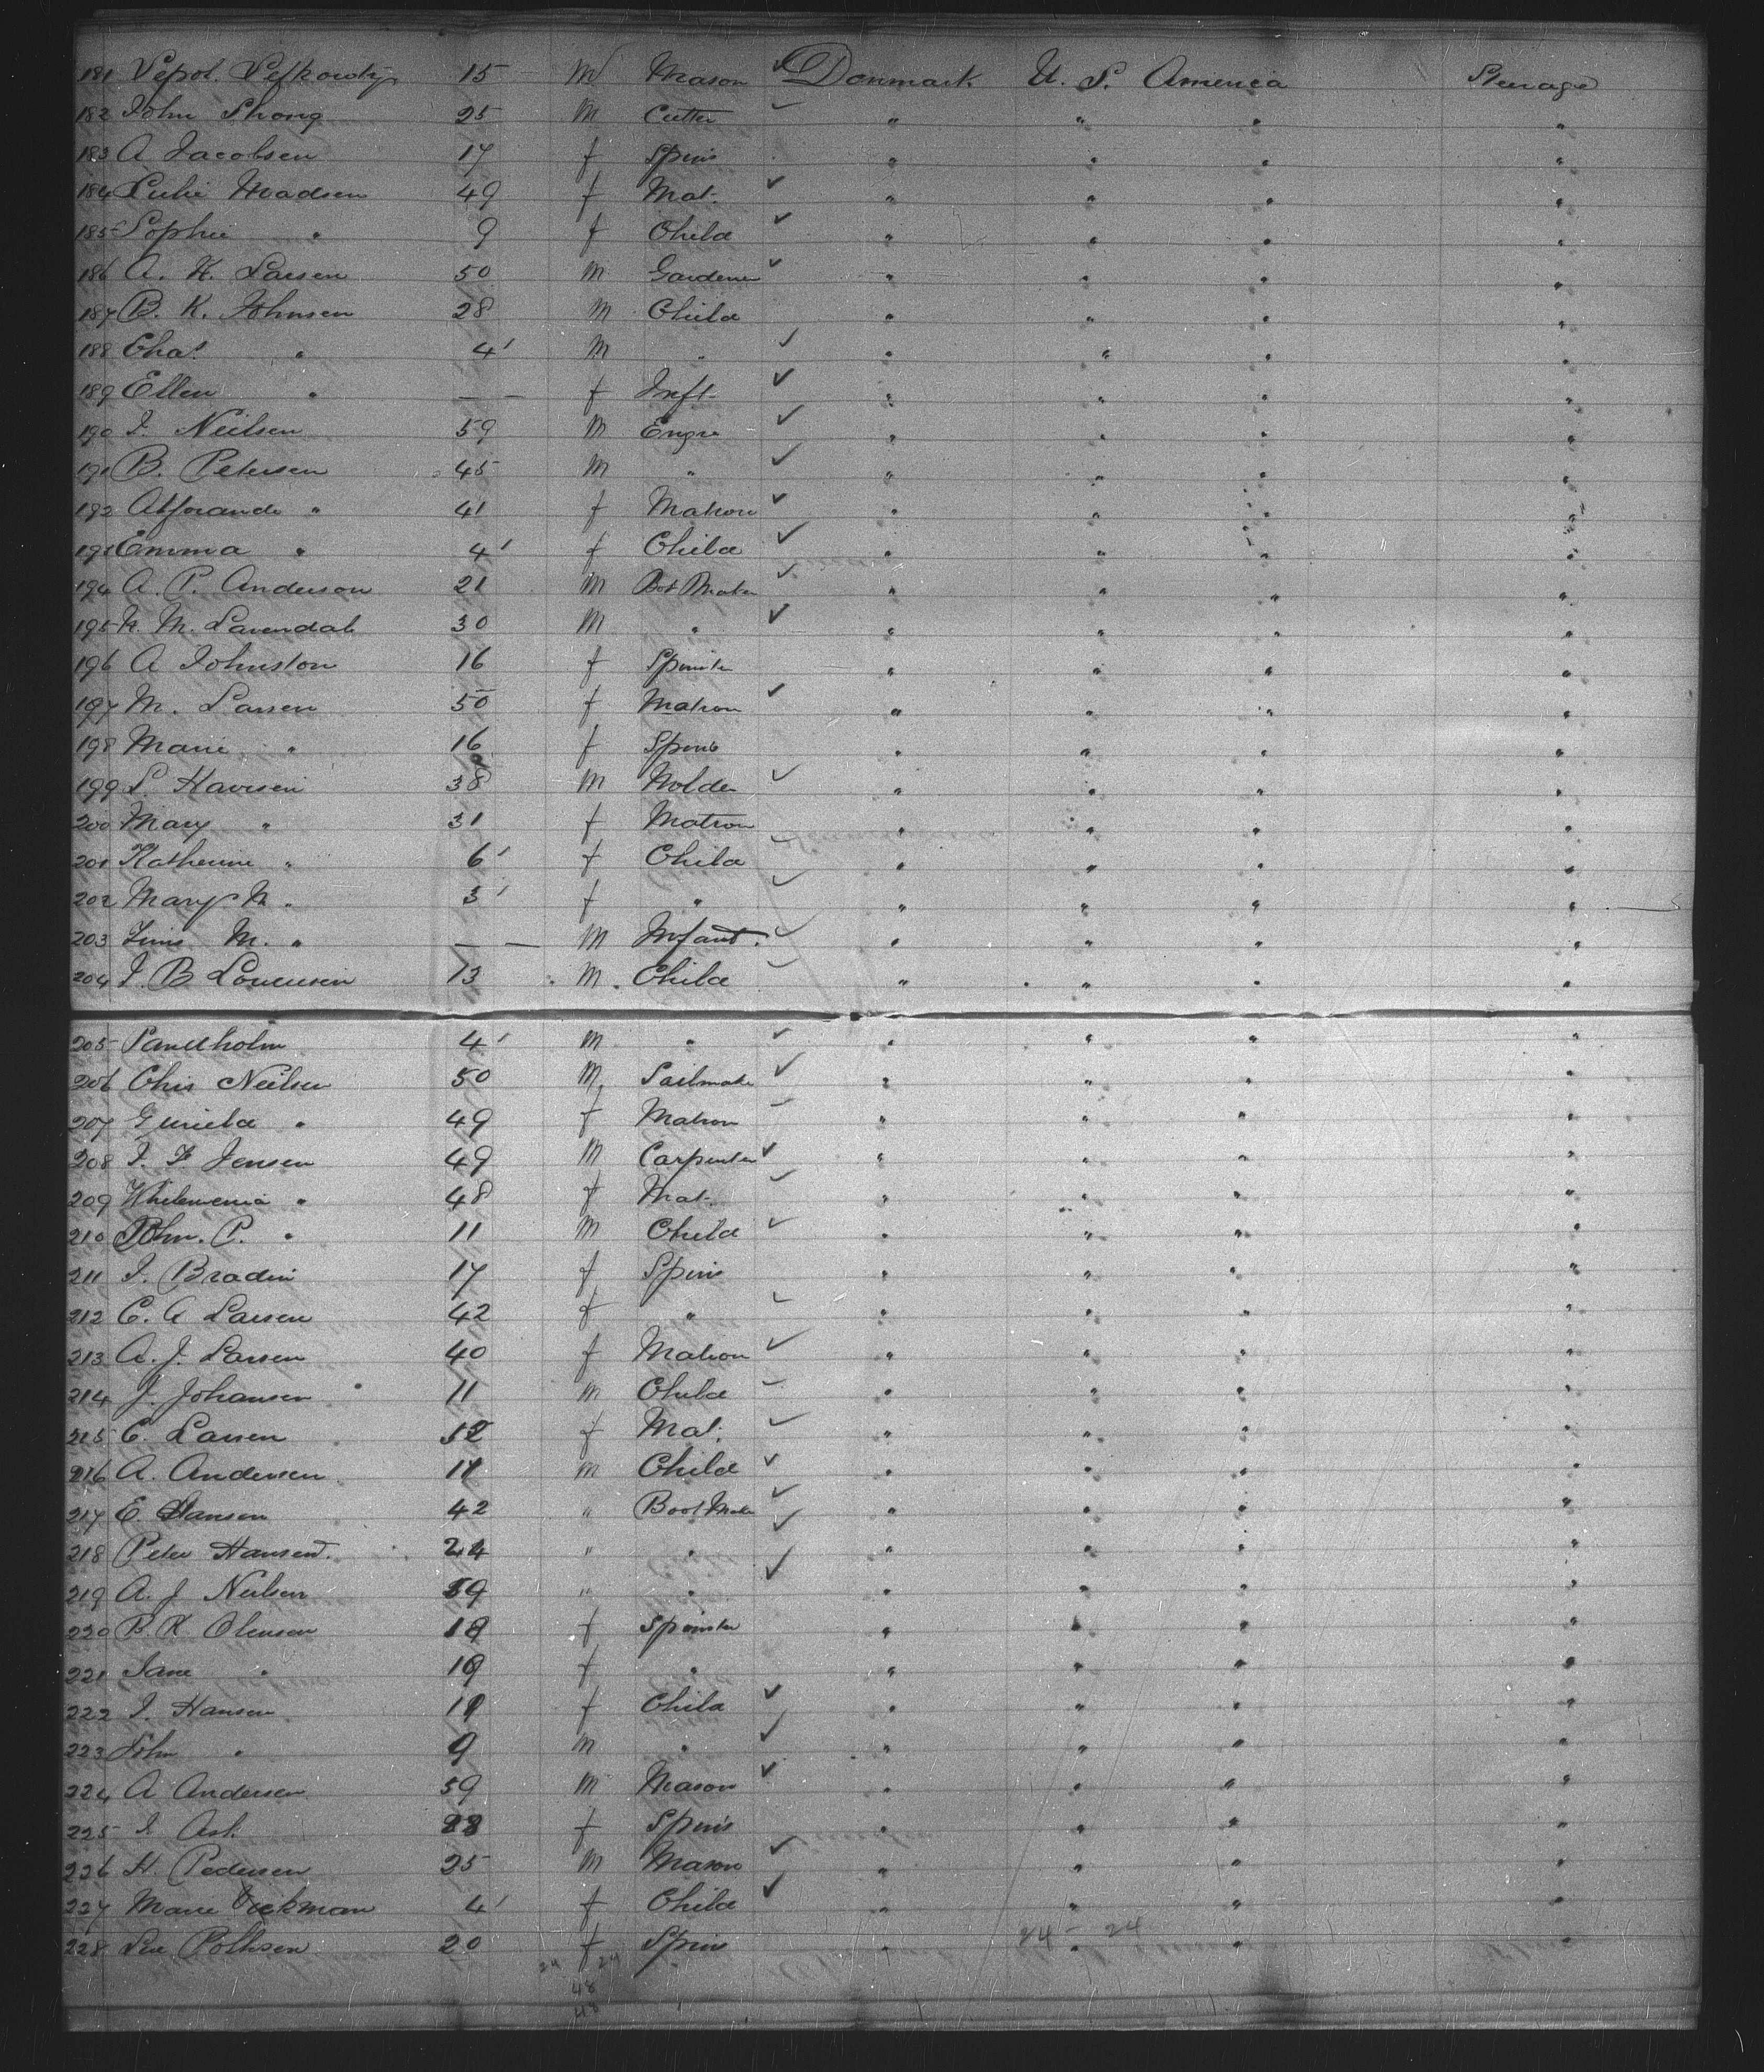 181 Lepol. Lefkowitz 15 M Mason Denmark U. S. America Steerage
182 John Strong 25 M Cutter " " " "
183 A Jacobsen 17 f Spins " " " "
184 Julie Madsen 49 f Mat. " " " "
185 Sophie " 9 f Child " " " "
186 A. K. Larsen 50 M Gardener " " " "
187 B. K. Johnsen 28 M Child " " " "
188 Chas. " 4' M " " " " "
189 Ellen " — — f Inft. " " " "
190 J. Neilsen 59 M Engr " " " "
191 B. Petersen 45 M " " " " "
192 " 41 f Matron " " " "
193 Emma " 4' f Child " " " "
194 A. P. Anderson 21 M Bot Maker " " " "
195 N. M. Lavendal 30 M " " " " "
196 A Johnston 16 f Spinster " " " "
197 M. Larsen 50 f Matron " " " "
198 Marie " 16 f Spins " " " "
199 S. Havesen 38 M Molder " " " "
200 Mary " 31 f Matron " " " "
201 Katherine " 6' f Child " " " "
202 Mary M. " 3' f " " " " "
203 Jens M. " — — M Infant. " " " "
204 J. B Lorensen 13 M. Child " " " "
205 Sandholm 4' M " " " " "
206 Chis Neilsen 50 M Sailmaker " " " "
207 " 49 f Matron " " " "
208 J. F. Jensen 49 M Carpenter " " " "
209 Whilemenia " 48 f Mat. " " " "
210 John. P. " 11 M Child " " " "
211 J. Bradin 17 f Spins " " " "
212 C. A Larsen 42 f " " " " "
213 A. J. Larsen 40 f Matron " " " "
214 J. Johansen 11 M Child " " " "
215 C. Larsen 52 f Mat. " " " "
216 A. Andersen 11 M Child " " " "
217 E. Hansen 42 " Boot Maker " " " "
218 Peter Hansen. 24 " " " " " "
219 A. J Neilsen 59 " " " " " "
220 B. K Olensen 18 f Spinster " " " "
221 Jane " 19 f " " " " "
222 J. Hansen 11 f Child " " " "
223 John " 9 M " " " " "
224 A Andersen 59 M Mason " " " "
225 Ast. 28 f Spins " " " "
226 H. Pedersen 25 M Mason " " " "
227 Marie Eickman 4' f Child " " " "
228 20 f Spins " " " "
24 - 24
24 24
48
48